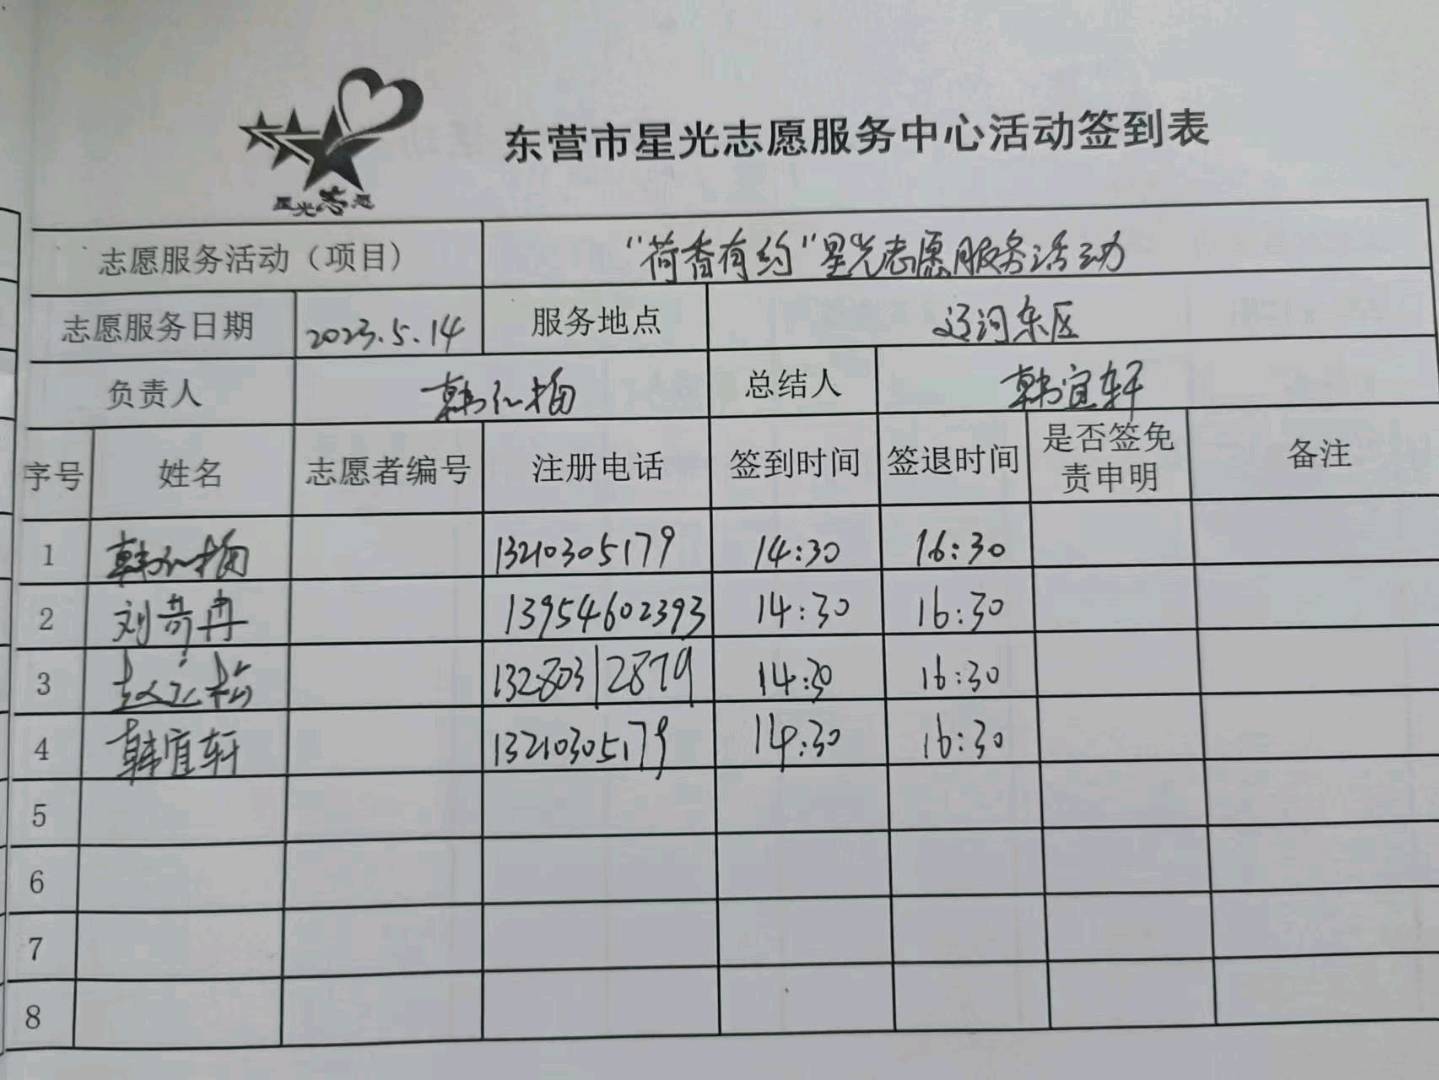 星光志愿
东营市星光志愿服务中心活动签到表
志愿服务活动（项目） “荷香有约”星光志愿服务活动
志愿服务日期 2023.5.14 服务地点 辽河东区
负责人 韩仁梅 总结人 韩宜轩
序号 姓名 志愿者编号 注册电话 签到时间 签退时间 是否签免责申明 备注
1 韩仁梅 13210305179 14:30 16:30
2 刘苛冉 13954602393 14:30 16:30
3 赵 13280312879 14:30 16:30
4 韩宜轩 13210305179 14:30 16:30
5
6
7
8